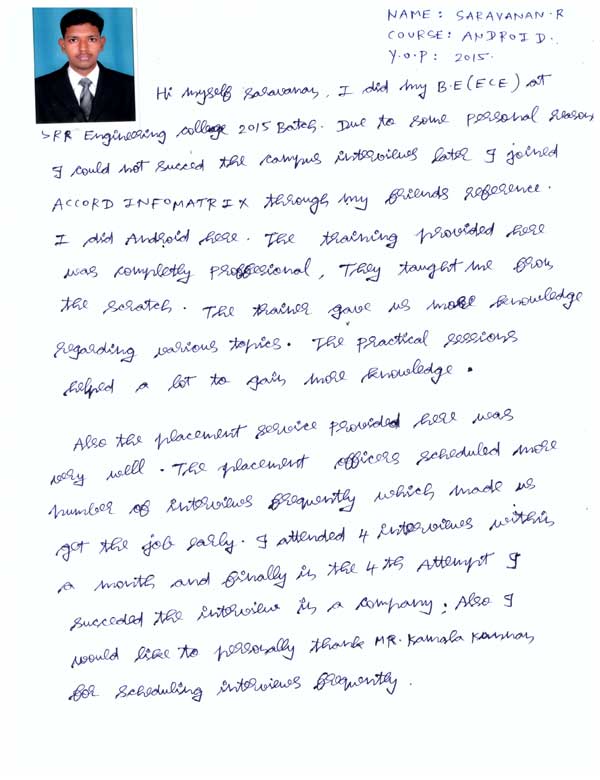 NAME: SARAVANAN.R
COURSE: ANDROID.
Y.O.P: 2015.
Hi myself Saravanan, I did my B.E(ECE) at
SRR Engineering college 2015 Batch. Due to some personal reason
I could not succed the campus interviews later I joined
ACCORD INFOMATRIX through my friends reference.
I did Android here. The training provided here
was completly proffesional, They taught me from
the scratch. The trainer gave us more knowledge
regarding various topics. The practical sessions
helped a lot to gain more knowledge.
Also the placement service provided here was
very well. The placement officers scheduled more
number of interviews frequently which made us
get the job early. I attended 4 interviews within
a month and finally in the 4th Attempt I
succeded the interview in a company. Also I
would like to personally thank MR. Kamala Kannan
for scheduling interviews frequently.